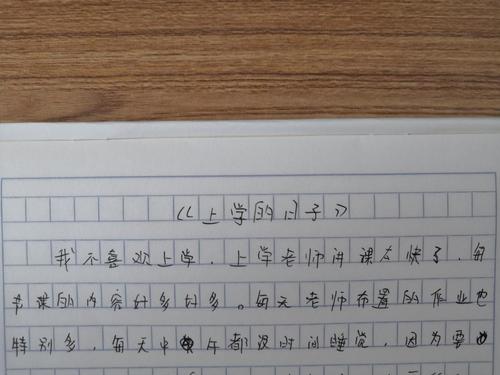 《上学的日子》
我不喜欢上学，上学老师讲课太快了，每
节课的内容好多好多。每天老师布置的作业也
特别多，每天中午都没时间睡觉，因为要